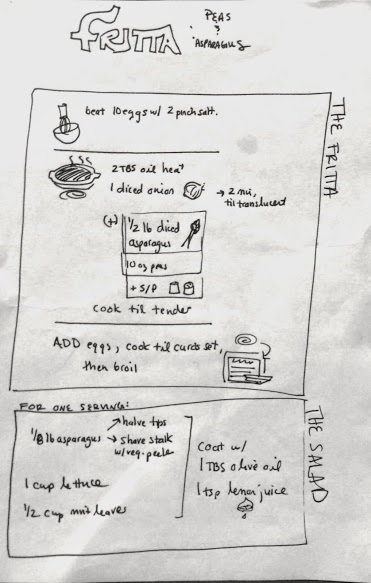 FRITTA
PEAS
&
ASPARAGUS
THE FRITTA
beat 10 eggs w/ 2 pinch salt.
2 TBS oil heat
1 diced onion → 2 min,
til translucent
(+) 1/2 lb diced
asparagus
10 oz peas
+ S/P
cook til tender
ADD eggs, cook til curds set,
then broil
THE SALAD
FOR ONE SERVING:
1/8 lb asparagus → halve tips
→ shave stalk
w/ veg. peeler
1 cup lettuce
1/2 cup mint leaves
Coat w/
1 TBS olive oil
1 tsp lemon juice